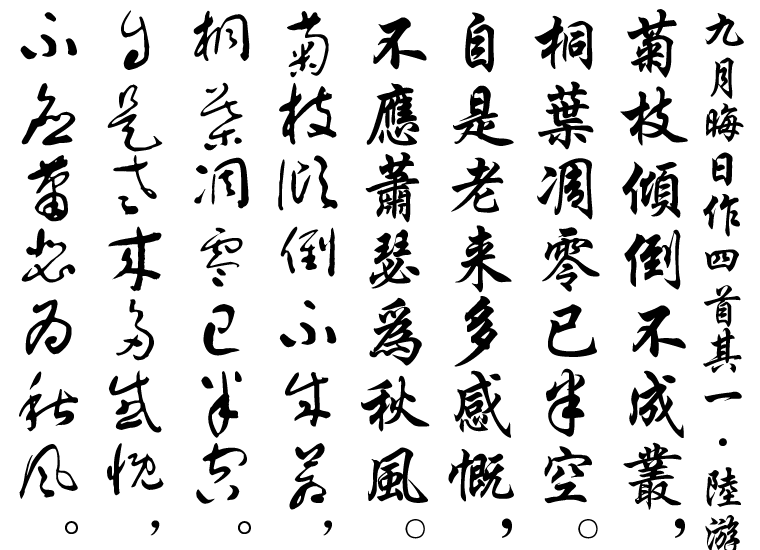 九月晦日作四首其一·陸游
菊枝傾倒不成叢，
桐葉凋零已半空。
自是老来多感慨，
不應蕭瑟為秋風。
菊枝傾倒不成叢，
桐葉凋零已半空。
自是老来多感慨，
不應蕭瑟為秋風。